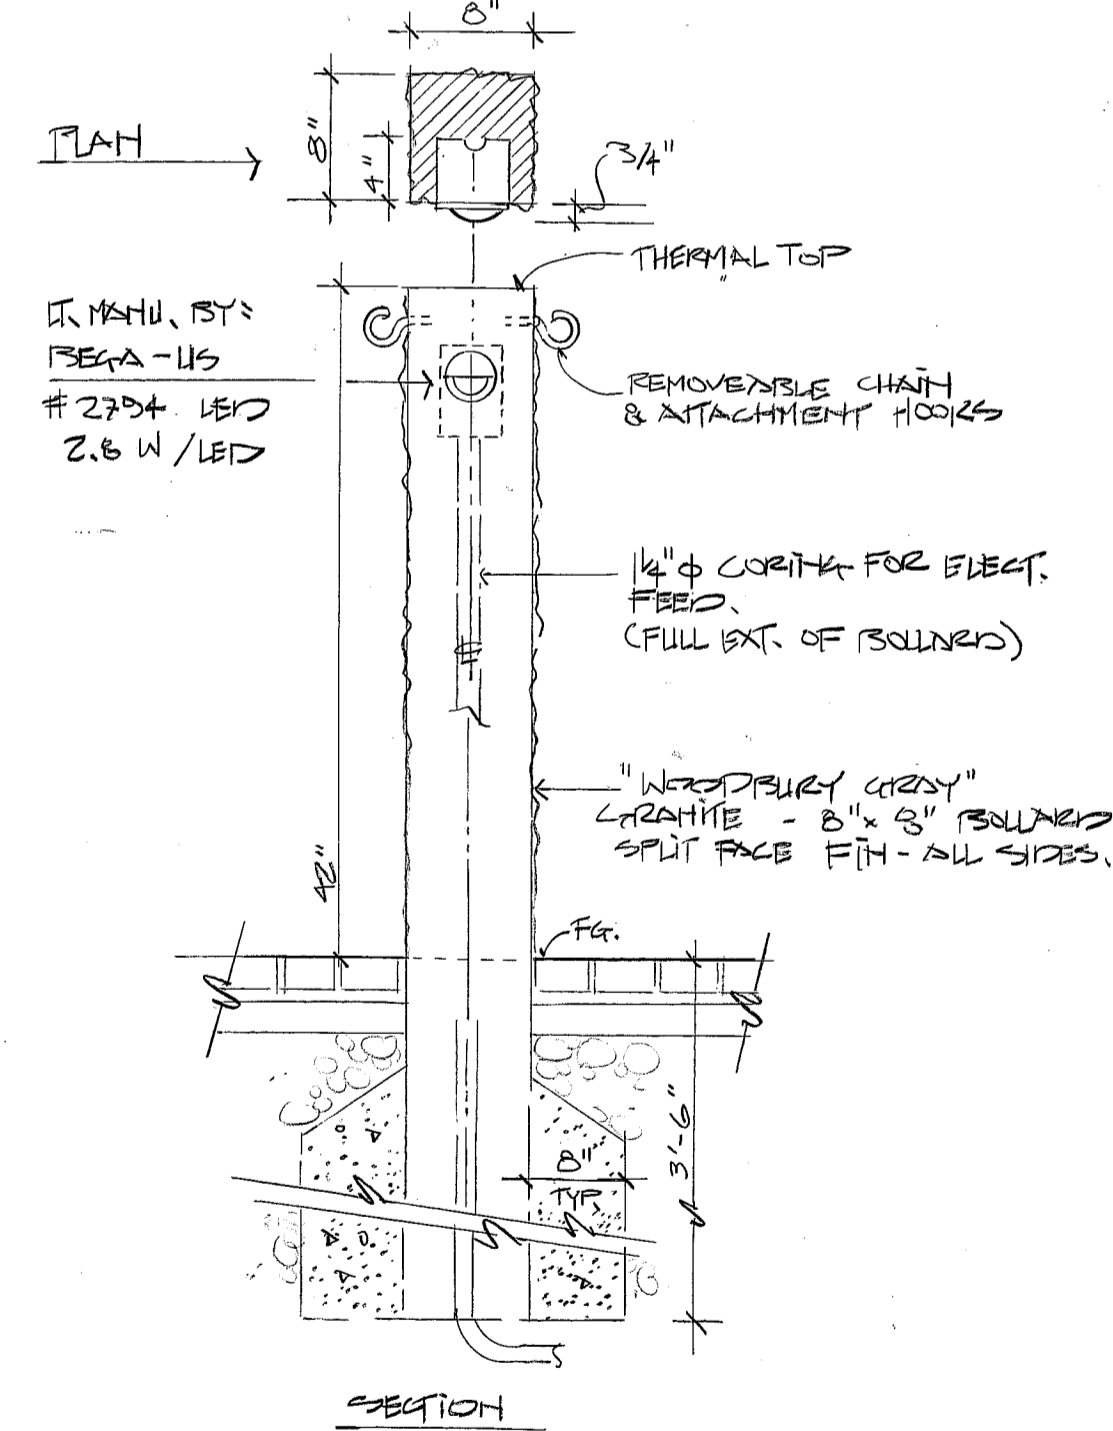 8"
PLAN
8"
4"
3/4"
THERMAL TOP
LT. MANU. BY:
BEGA-US
# 2794 LED
2.8 W/LED
REMOVEABLE CHAIN
& ATTACHMENT HOOKS
1 1/4" φ CORING FOR ELECT.
FEED.
(FULL EXT. OF BOLLARD)
"WOODBURY GRAY"
GRANITE - 8" x 8" BOLLARD
SPLIT FACE FIN - ALL SIDES.
42"
FG.
3'-6"
8"
TYP.
SECTION